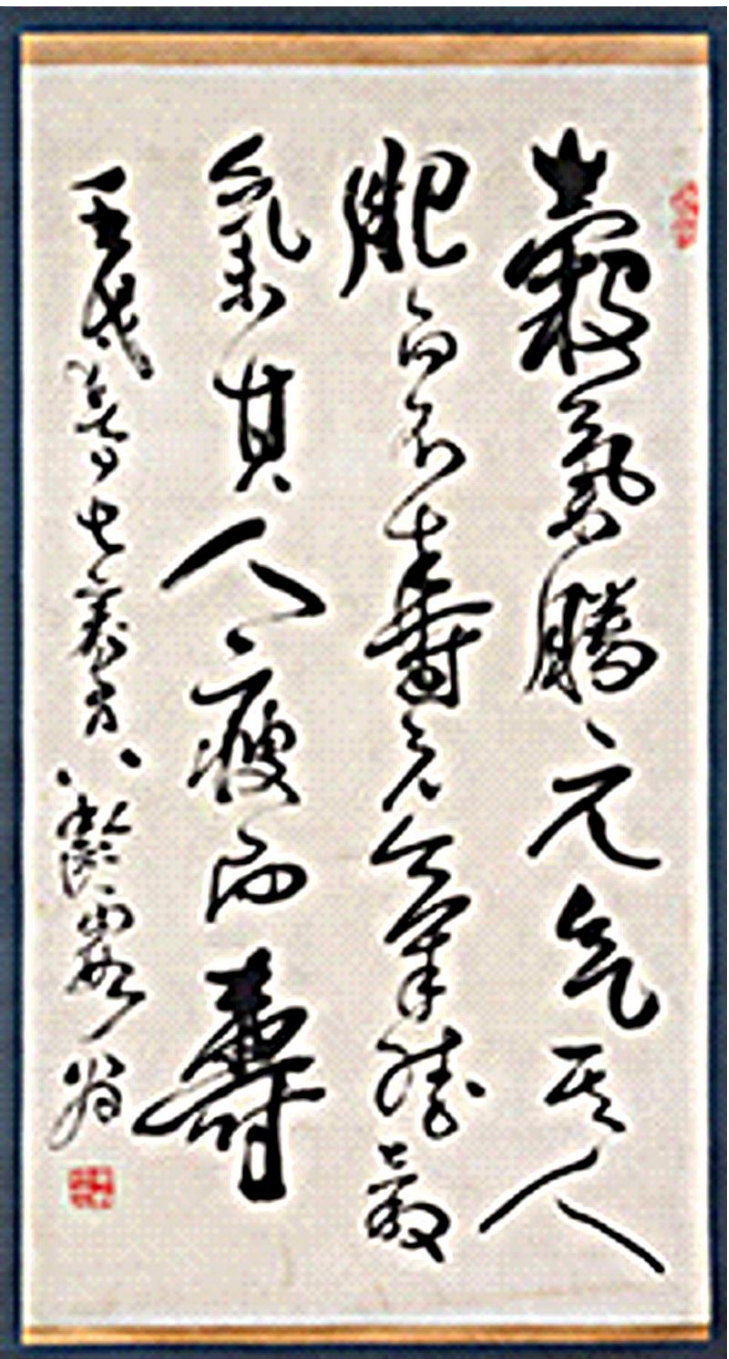 穀氣勝元气其人
肥而不壽元氣勝穀
氣其人瘦而壽
壬戌
八齡 翁